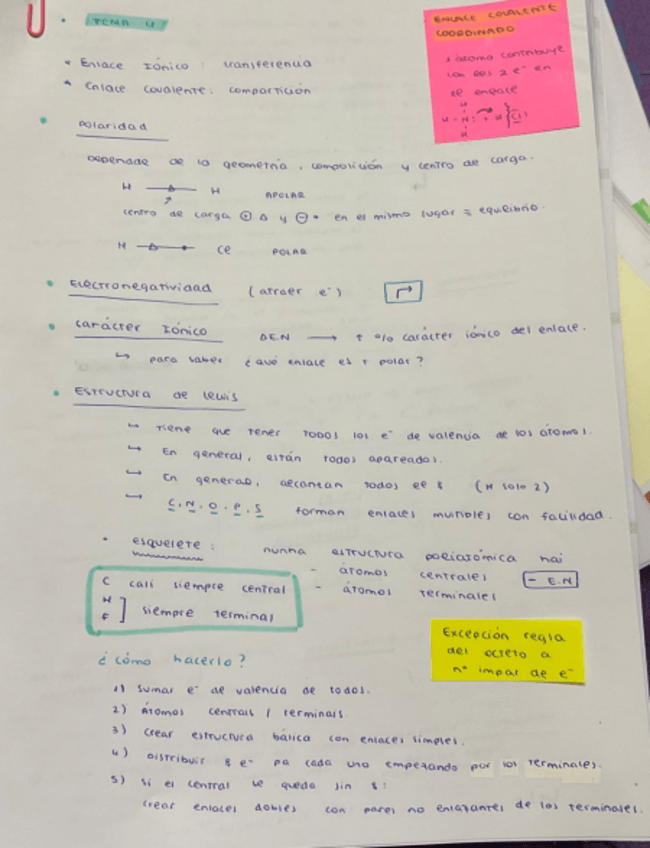 TEMA 4
* Enlace Iónico: transferencia
* Enlace covalente: compartición
ENLACE COVALENTE
COORDINADO
1 átomo contribuye
con los 2 e- en
el enlace
H
H - N: + H } Cl
H
Polaridad
Depende de la geometría, composición y centro de carga.
H H APOLAR
centro de carga ⊕ Δ y ⊖ • en el mismo lugar = equilibrio.
H Ce POLAR
Electronegatividad (atraer e-)
Carácter Iónico ΔEN → ↑ % carácter iónico del enlace.
↳ para saber ¿qué enlace es + polar?
Estructura de Lewis
↳ Tiene que tener TODOS los e- de valencia de los átomos.
↳ En general, están todos apareados.
↳ En general, alcanzan todos el 8 (H solo 2)
↳ C, N, O, P, S forman enlaces multiples con facilidad.
• esquelete: nunha estructura poliatómica hai
- átomos centrales - E.N
- átomos terminales
C casi siempre central
H
F ] siempre terminal
Excepción regla
del octeto a
nº impar de e-
¿cómo hacerlo?
1) Sumar e- de valencia de todos.
2) Átomos centrais / terminais.
3) crear estructura básica con enlaces simples.
4) Distribuir 8 e- pa cada uno empezando por los terminales.
5) si el central se queda sin 8:
crear enlaces dobles con pares no enlazantes de los terminales.